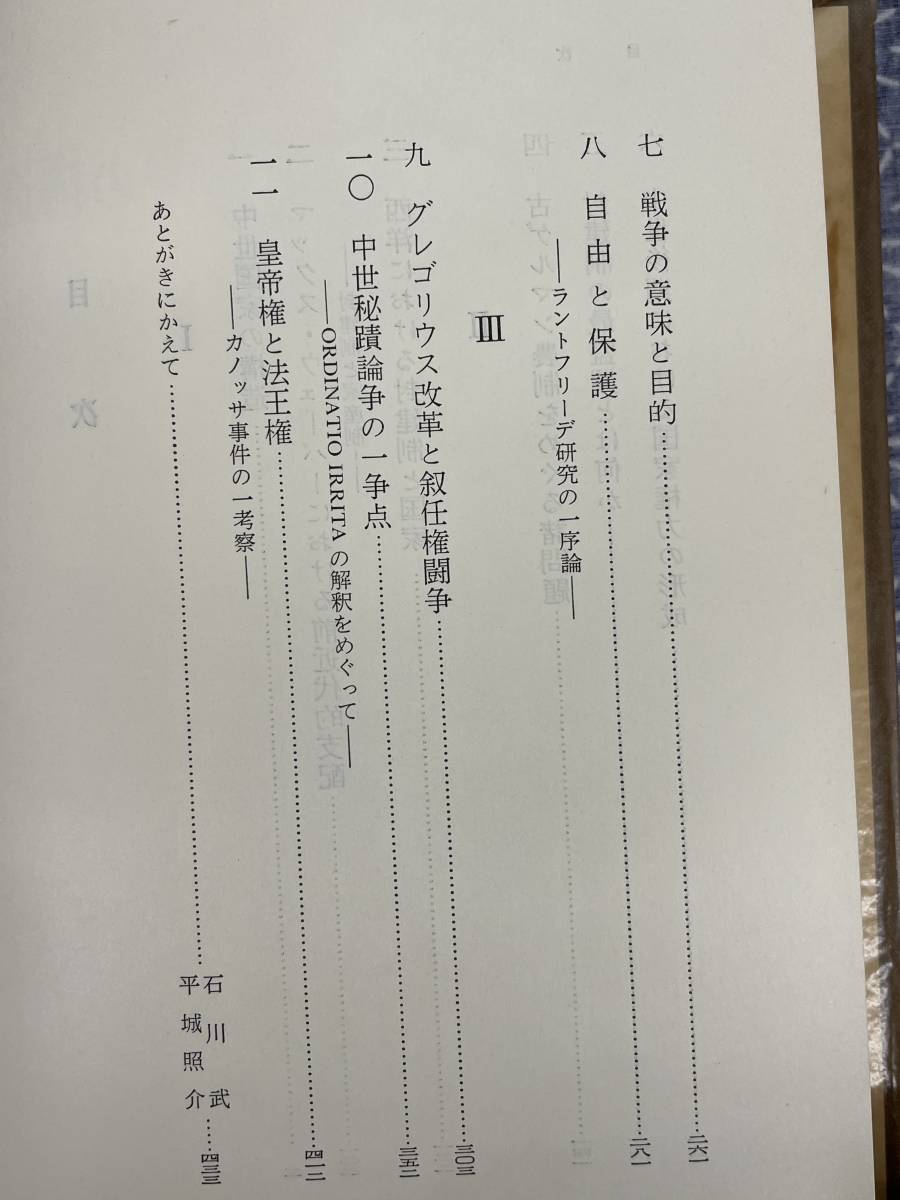 七 戦争の意味と目的……二六一
八 自由と保護……二八一
――ラントフリーデ研究の一序論――
Ⅲ
九 グレゴリウス改革と叙任権闘争……三〇三
一〇 中世秘蹟論争の一争点……三五二
――ORDINATIO IRRITA の解釈をめぐって――
一一 皇帝権と法王権……四一二
――カノッサ事件の一考察――
あとがきにかえて……石川武……四三三
平城照介